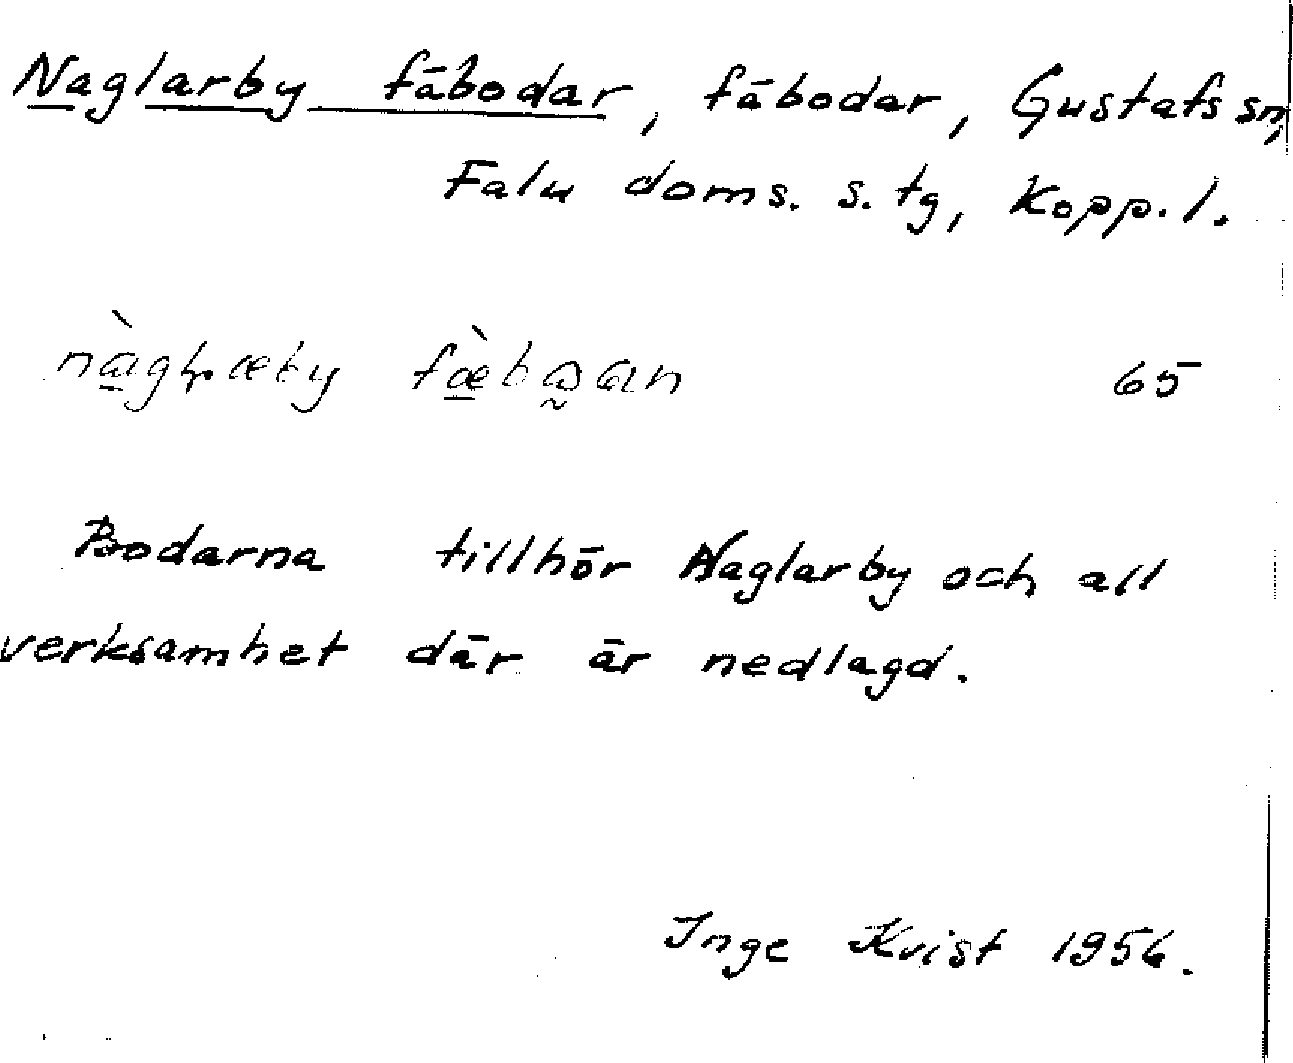 Naglarby fäbodar, fäbodar, Gustafs sn,
Falu doms. s. tg, Kopp. l.
65
Bodarna tillhör Naglarby och all
verksamhet där är nedlagd.
Inge Kvist 1956.